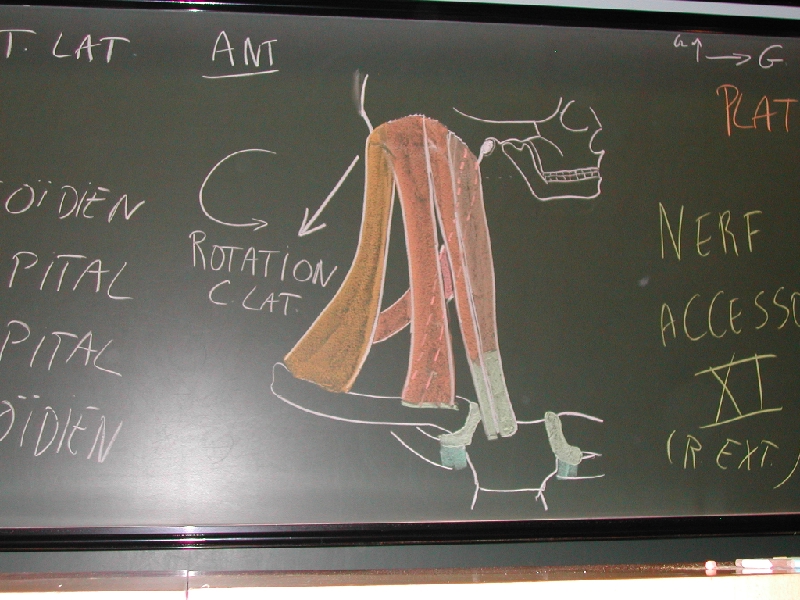 T. LAT
ANT
→ G
PLAT
OÏDIEN
PITAL
PITAL
OÏDIEN
ROTATION
C. LAT.
NERF
ACCESSO
XI
(R EXT.)